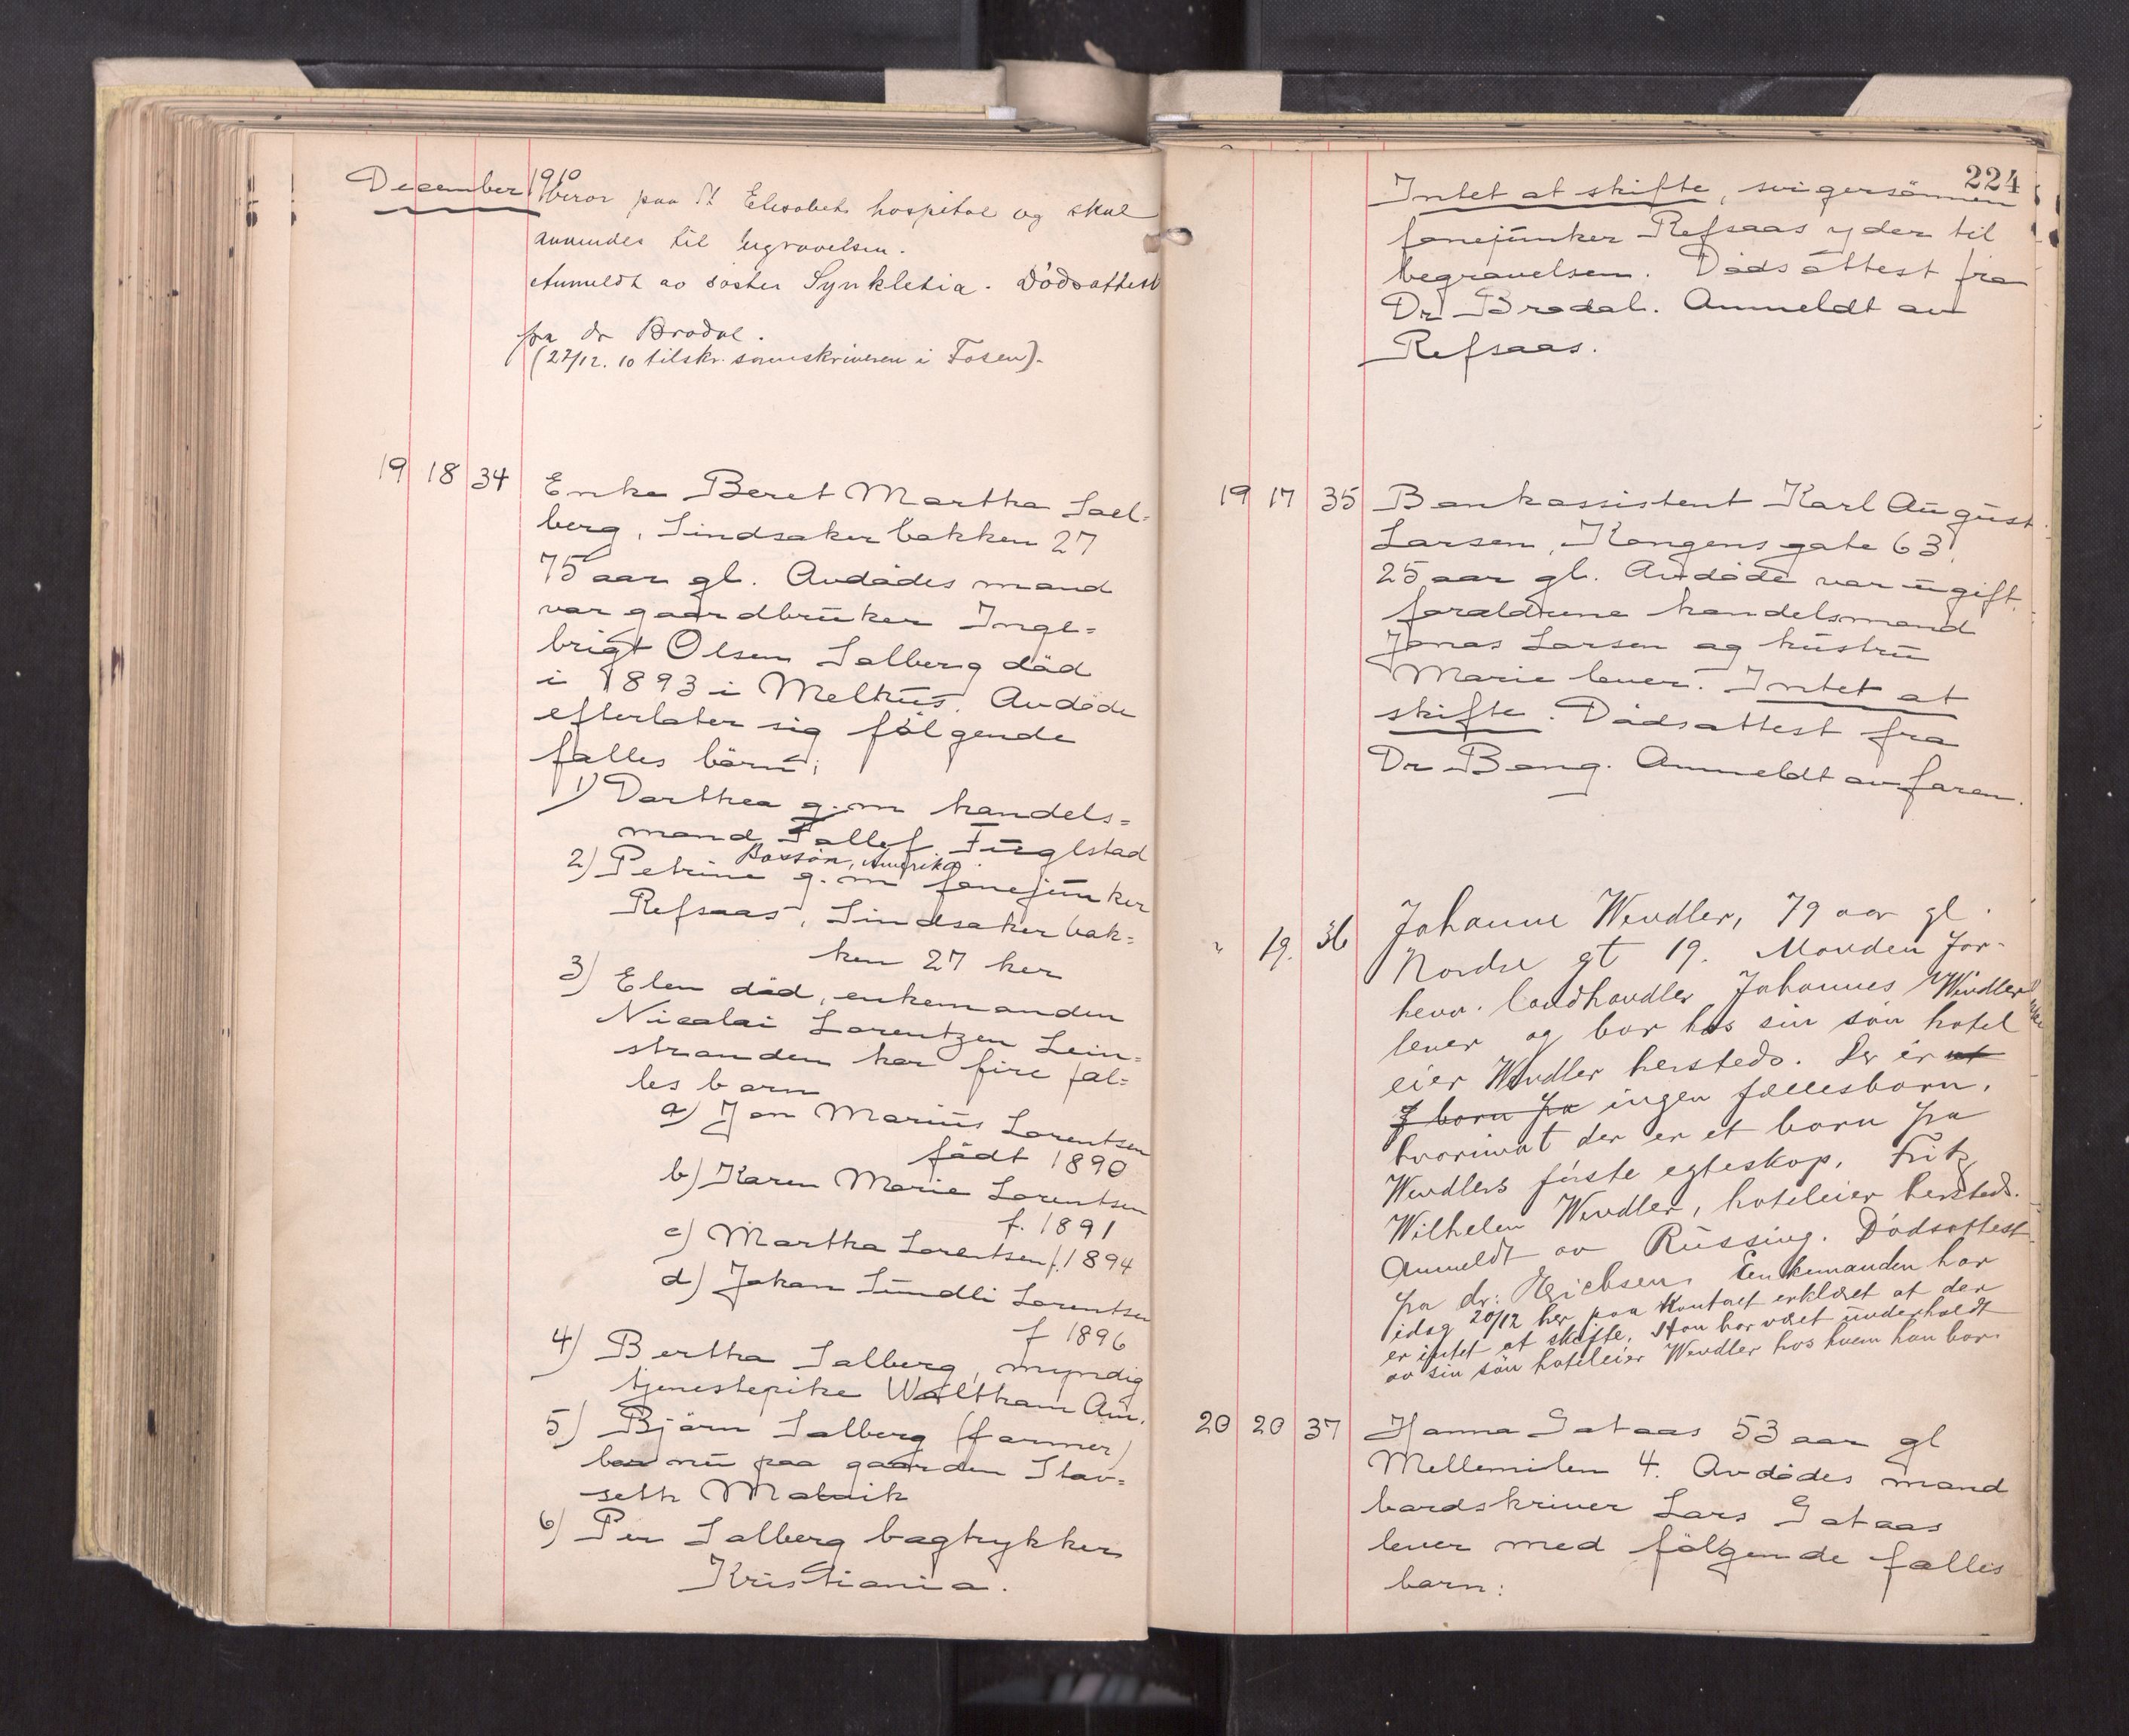 December 1910
beror paa St Elisabeth hospital og skal
anvendes til begravelsen.
Anmeldt av søster Synkletia. Dödsattest
fra dr Brodal.
(22/12. 10 tilskr. sorenskriveren i Fosen).
19 18 34 Enke Beret Martha Sael-
berg, Lindsakerbakken 27
75 aar gl. Avdödes mand
var gaardbruker Inge-
brigt Olsen Salberg död
i 1893 i Melhus. Avdöde
efterlater sig fölgende
fælles börn:
1) Dorthea g. m. handels-
mand Tallef Fuglstad
Boston, Amerika.
2) Petrine g. m. fanejunker
Refsaas, Lindsakerbak-
ken 27 her
3) Elen död, enkemanden
Nicolai Lorentzen Lein-
stranden har fire fæl-
les barn
a) Jon Marius Lorentsen
födt 1890
b) Karen Marie Lorentsen
f. 1891
c) Martha Lorentsen f. 1894
d) Johan Lundli Lorentsen
f 1896
4) Bertha Salberg, myndig
tjenestepike Waltham Am.
5) Björn Salberg (farmer)
bor nu paa gaarden Stav-
seth Malvik
6) Per Salberg bogtrykker
Kristiania.
224
Intet at skifte, svigersönnen
fanejunker Refsaas yder til
begravelsen. Dödsattest fra
Dr Brodal. Anmeldt av
Refsaas.
19 17 35 Bankassistent Karl August
Larsen, Kongensgate 63!
25 aar gl. Avdöde var ugift,
foraldrene handelsmand
Jonas Larsen og hustru
Marie lever. Intet at
skifte. Dödsattest fra
Dr Bang. Anmeldt av faren.
" 19. 36 Johanne Wendler, 79 aar gl.
Nordre gt 19. Manden for-
henv. landhandler Johannes Wendler
lever og bor hos sin sön hotel
eier Wendler hersteds. Der er
ingen fællesbarn,
hvorimot der er et barn fra
Wendlers förste egteskap, Fritz
Wilhelm Wendler, hoteleier hersteds.
Anmeldt av Rüssing. Dödsattest
fra dr: Erichsen. Enkemanden har
idag 20/12 her paa Kontoret erklæret at der
er intet at skifte. Hun har været underholdt
av sin sön hoteleier Wendler hos hvem hun bor.
20 20 37 Hanna Gataas 53 aar gl
Mellemilen 4. Avdödes mand
bordskriver Lars Gataas
lever med fölgende fælles
barn: